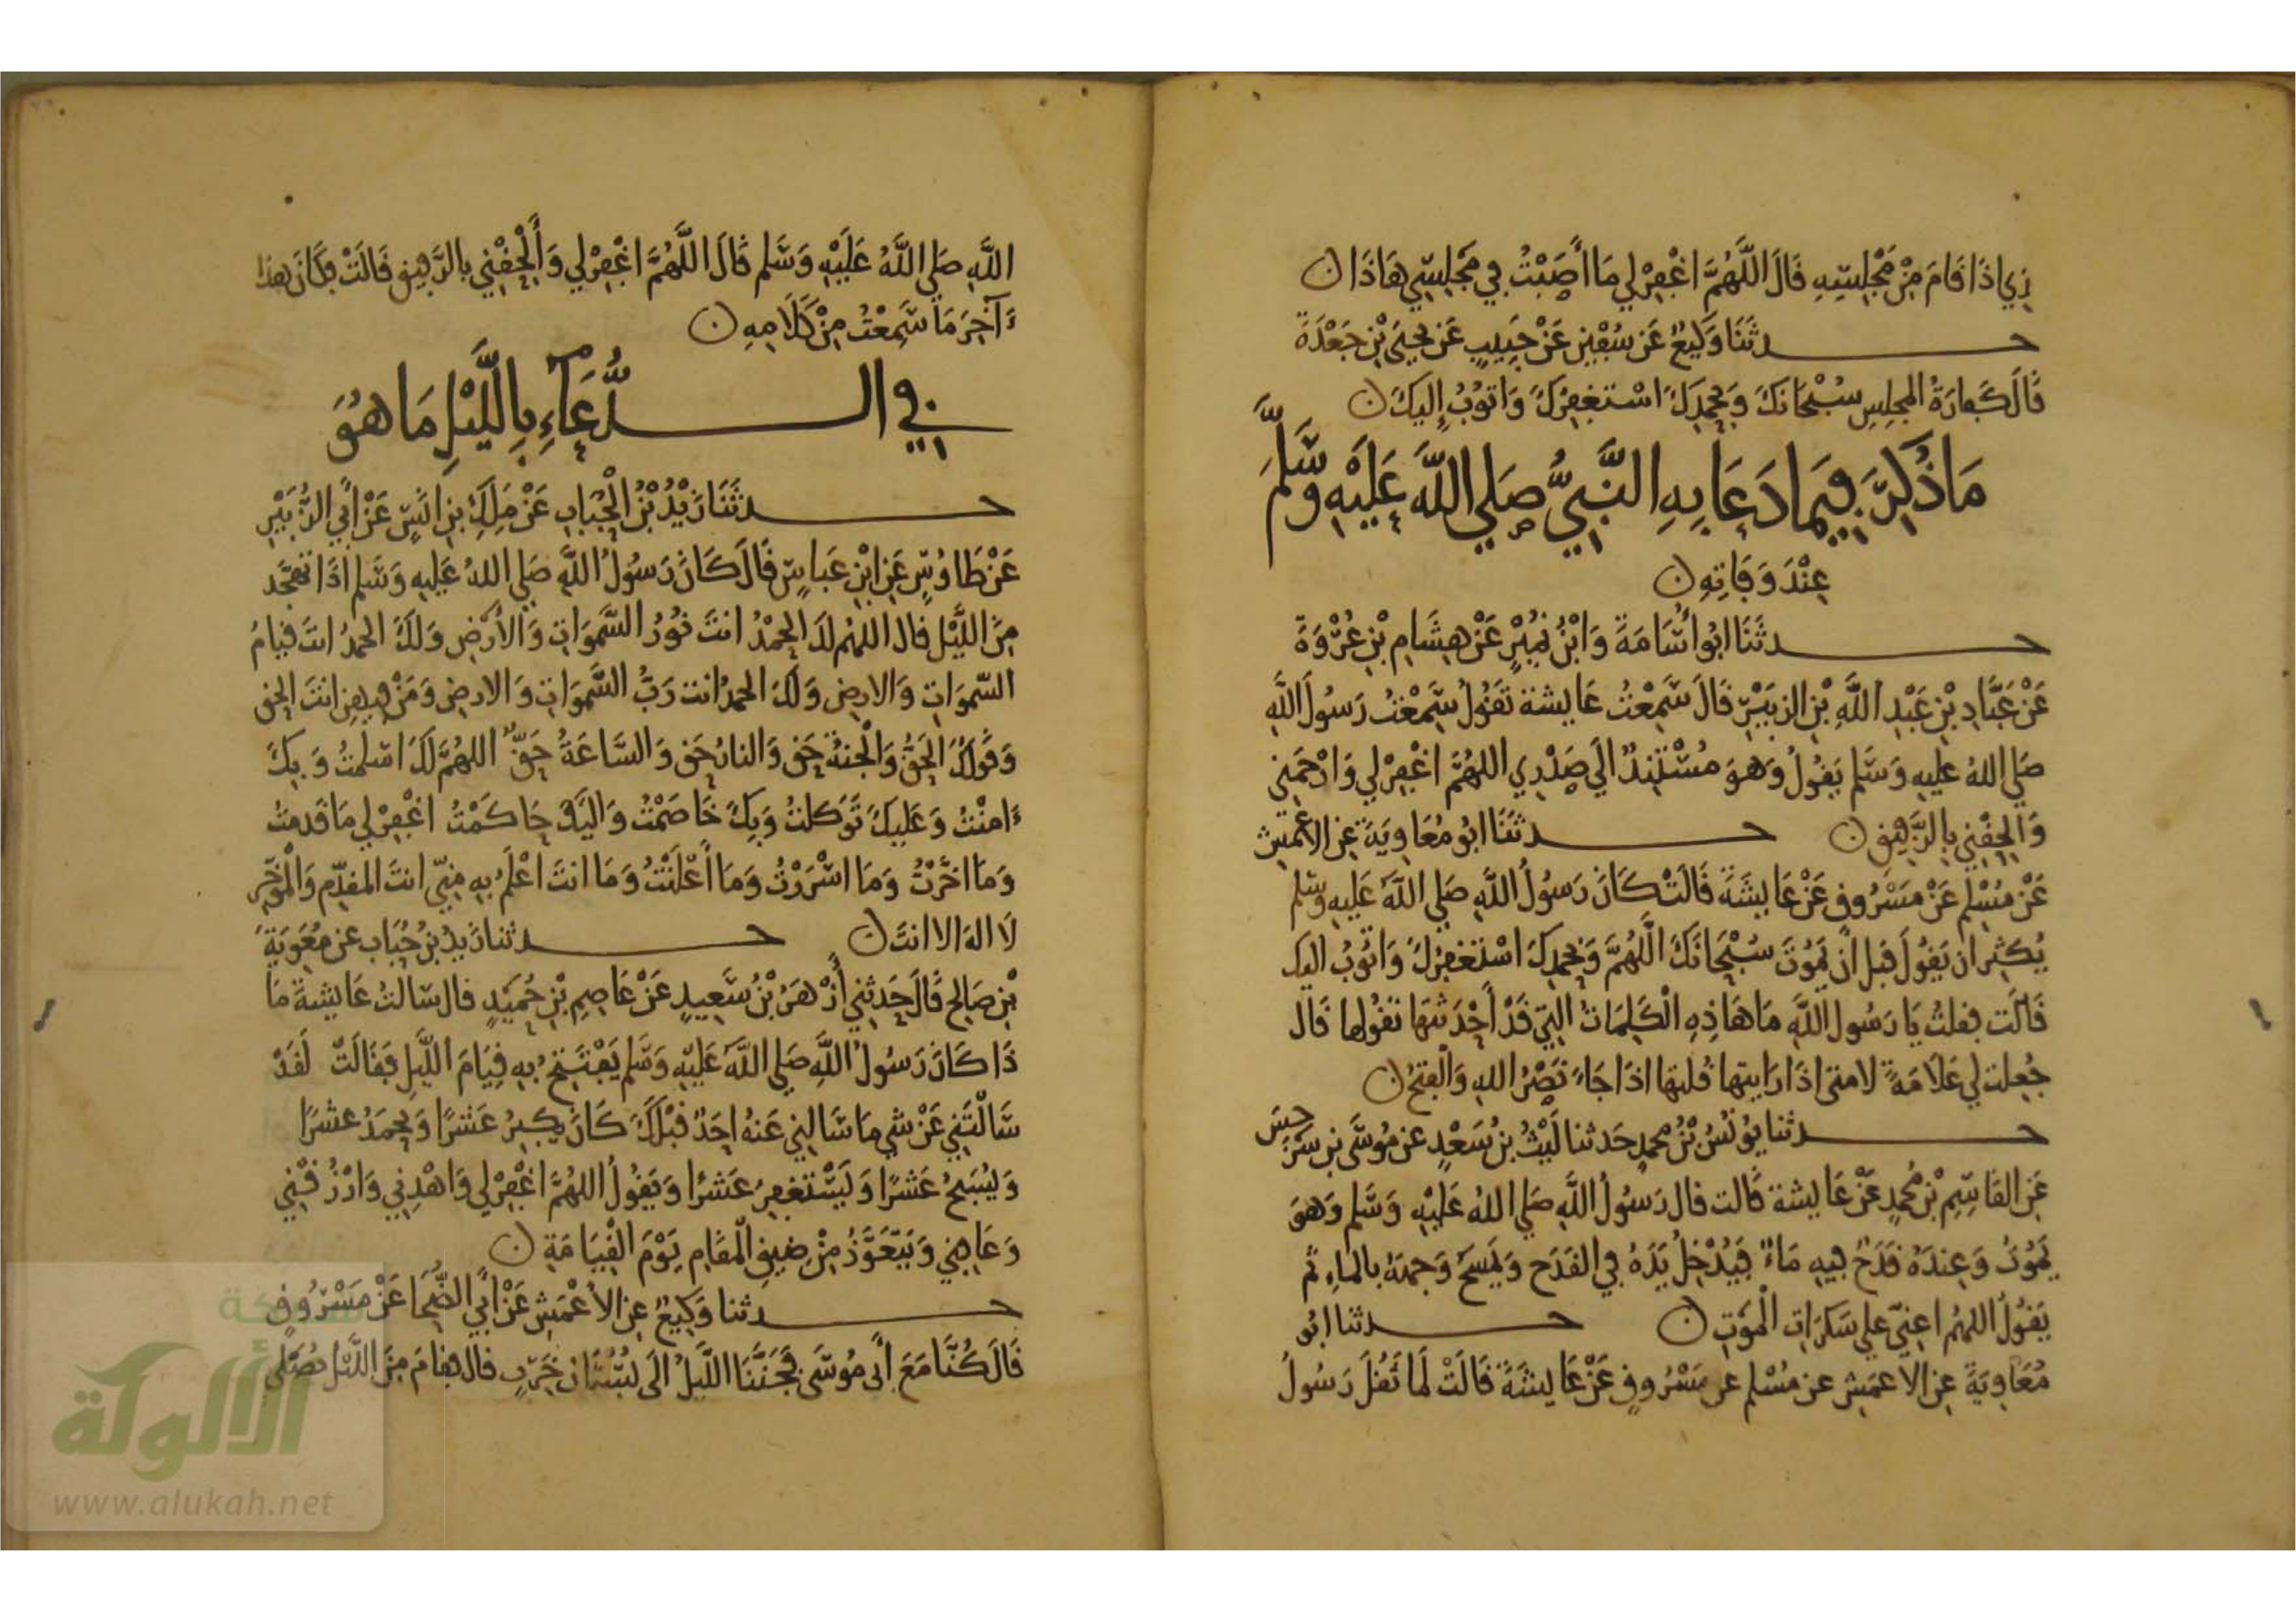 ذِي إذَا قَامَ مِنْ مَجْلِسِهِ قَالَ اللَّهُمَّ اغْفِرْ لِي مَا أَصَبْتُ فِي مَجْلِسِي هَاذَا ن
حدثَنَا وَكِيعٌ عَن سُفْيٰن عَنْ حَبِيبٍ عَن يحيَى بْنِ جَعْدَةَ
قَالَ كَفَارَةُ المجلِسِ سُبْحَانَكَ وَبحَمدِكَ اسْتغفِرُكَ وَاتُوبُ إِليكَ ن
مَا ذُكِرَ فِيمَا دَعَا بِهِ النَّبِيُّ صَلي اللَّهُ عَلَيْهِ وَسَّلَّمَ
عِنْدَ وَفَاتِهِ ن
حدثَنَا ابُو أُسَامَةَ وَابْنُ نُمَيْرٍ عَنْ هِشَامِ بْنِ عُرْوَةَ
عَنْ عَبَّادِ بْنِ عَبْدِ اللَّهِ بْنِ الزبَيْرِ قَالَ سَمِعْتُ عَايشة تَقُولُ سَمِعْتُ رَسُولَ اللَّهِ
صَلي اللهُ عليهِ وَسَلم يَقُولُ وَهوَ مسْتَنِدٌ الَي صَدْرِي اللهُمَّ اغْفِرْ لِي وَارْحَمْنِي
وَالحِقْنِي بِالرَّفِيقِ ن حدثَنَا ابُو مُعَاوِيَةَ عَن الاعْمَشِ
عَنْ مُسْلِم عَنْ مَسْرُوقٍ عَنْ عَايِشَةَ قَالَتْ كَانَ رَسُولُ اللَّهِ صَلي اللَّهُ عَلِيهِ وسَلم
يُكثِر ان يَقُولَ قبل ان يَمُوتَ سُبْحَانَكَ اللَّهُمَّ وَبحمدِكَ اسْتَغفِرُكَ وَاتُوبُ اليك
قَالَت فقلتُ يَا رَسُول اللَّهِ مَا هَاذِهِ الْكَلِمَاتُ التِي قَدْ أَحْدَثتَهَا تَقُولها قَال
جُعِلت لِي عَلَامَةٌ لامتى اذَا رَايتها قُلتها اذَا جَاءَ نَصْرُ اللهِ وَالفتحُ ن
حدثنا يُونُسُ بْنُ محمدٍ حَدثنا لَيْثُ بنُ سَعْدٍ عن مُوسَى بن سَرْجسَ
عَن القَاسِمِ بْنِ مُحمدٍ عَنْ عَايشة قَالت قال رَسُولُ اللَّهِ صَلي اللهُ عَلَيْهِ وَسَلم وَهوَ
يَمُوتُ وَعِندَهُ قَدَحٌ فِيهِ مَاءٌ فَيُدْخِلُ يَدَهُ فِي القدَح وَيمسَحُ وَجهَهُ بالماءِ ثم
يَقُولُ اللهُم اعِنِّي علي سَكرَات الْمَوتِ ن حدثنا ابُو
مُعَاوِيَةَ عن الاعمَش عن مُسْلم عن مَسْرُوقٍ عَنْ عَايشَةَ قَالَتْ لَمَا ثَقُلَ رَسُولُ
اللَّهِ صَلي اللَّهُ عَلَيْهِ وَسَّلم قَالَ اللَّهُمَّ اغْفِرْ لِي وَأَلْحِقْنِي بِالرَّفِيقِ قَالَتْ فكَانَ هذا
ءَآخِرَ مَا سَمِعْتُ مِنْ كَلَامِهِ ن
فِي الدُّعَآءِ بِاللَّيْلِ مَا هُوَ
حدثَنَا زَيْدُ بْنُ الْحُبَابِ عَنْ مَلِكِ بنِ انَسٍ عَنْ أَبِي الزُّبَيْرِ
عَنْ طَاوُسٍ عَنِ ابْنِ عَباسٍ قَالَ كَانَ رَسُولُ اللَّهِ صَلي اللهُ عَليهِ وَسَلم اذَا تهجَّد
مِنَ اللَّيْل قال اللهُم لَكَ الحمْدُ انتَ نُورُ السَّموَاتِ وَالأَرْضِ وَلَكَ الحمدُ انتَ قيامُ
السّموَاتِ وَالارضِ وَلَكَ الحمدُ انتَ رَبُّ السَّموَاتِ وَالارضِ وَمَنْ فِيهِن انتَ الحق
وَقَولُكَ الحَقُ وَالْجنةُ حَق وَالنارُ حَق وَالسَّاعَةُ حَقٌّ اللهُمَّ لَكَ اسْلمتُ وَبِكَ
ءَامنْتُ وَعَليكَ تَوَكلتُ وَبِكَ خَاصَمْتُ وَاليَكَ حَاكَمْتُ اغْفِرْ لِي مَا قَدمتُ
وَمَا اخَّرْتُ وَمَا اسْرَرْتُ وَمَا أَعْلَنْتُ وَمَا انتَ اعْلَمُ بِهِ مِنِّي انتَ المقدِّم وَالْمُؤخِّر
لَا الهَ الا انتَ ن حدثنا زَيدُ بنُ حُبَاب عن مُعَوِيَةَ
بْنِ صَالِحٍ قَالَ حَدثنِي أَزْهَرُ بْنُ سَّعِيدٍ عَنْ عَاصِمِ بْنِ حُمَيْدٍ قال سَالتُ عَايشةَ مَا
ذَا كَانَ رَسُولُ اللَّهِ صَلي اللَّهُ عَلَيْهِ وَسَلم يَفْتَتِحُ بِهِ قِيَامَ اللَّيلِ فَقَالَتْ لَقَدْ
سَّالْتَنِي عَنْ شيءٍ مَا سَّالنِي عَنهُ احَدٌ قَبْلَكَ كَانَ يكبِرُ عَشرًا وَيحمَدُ عشرًا
وَيُسَبحُ عَشرًا وَيَسْتغفِرُ عَشرًا وَيَقُولُ اللهُمَّ اغْفِرْ لِي وَاهْدِنِي وَارْزُقْنِي
وَعَافِنِي وَيَتَعَوَّذُ مِنْ ضِيقِ الْمَقَامِ يَوْمَ الْقِيَامَةِ ن
حدثنا وَكِيعٌ عن الأَعْمَشِ عَنْ أَبِي الضُّحَا عَنْ مَسْرُوقٍ
قَالَ كُنَّا مَعَ أَبى مُوسَّى فَجَنَّنَا اللَّيلُ الَى بُسْتَان خَرِبٍ قال فقامَ مِنَ اللَّيْل يُصَلي
شبكة
الألوكة
www.alukah.net